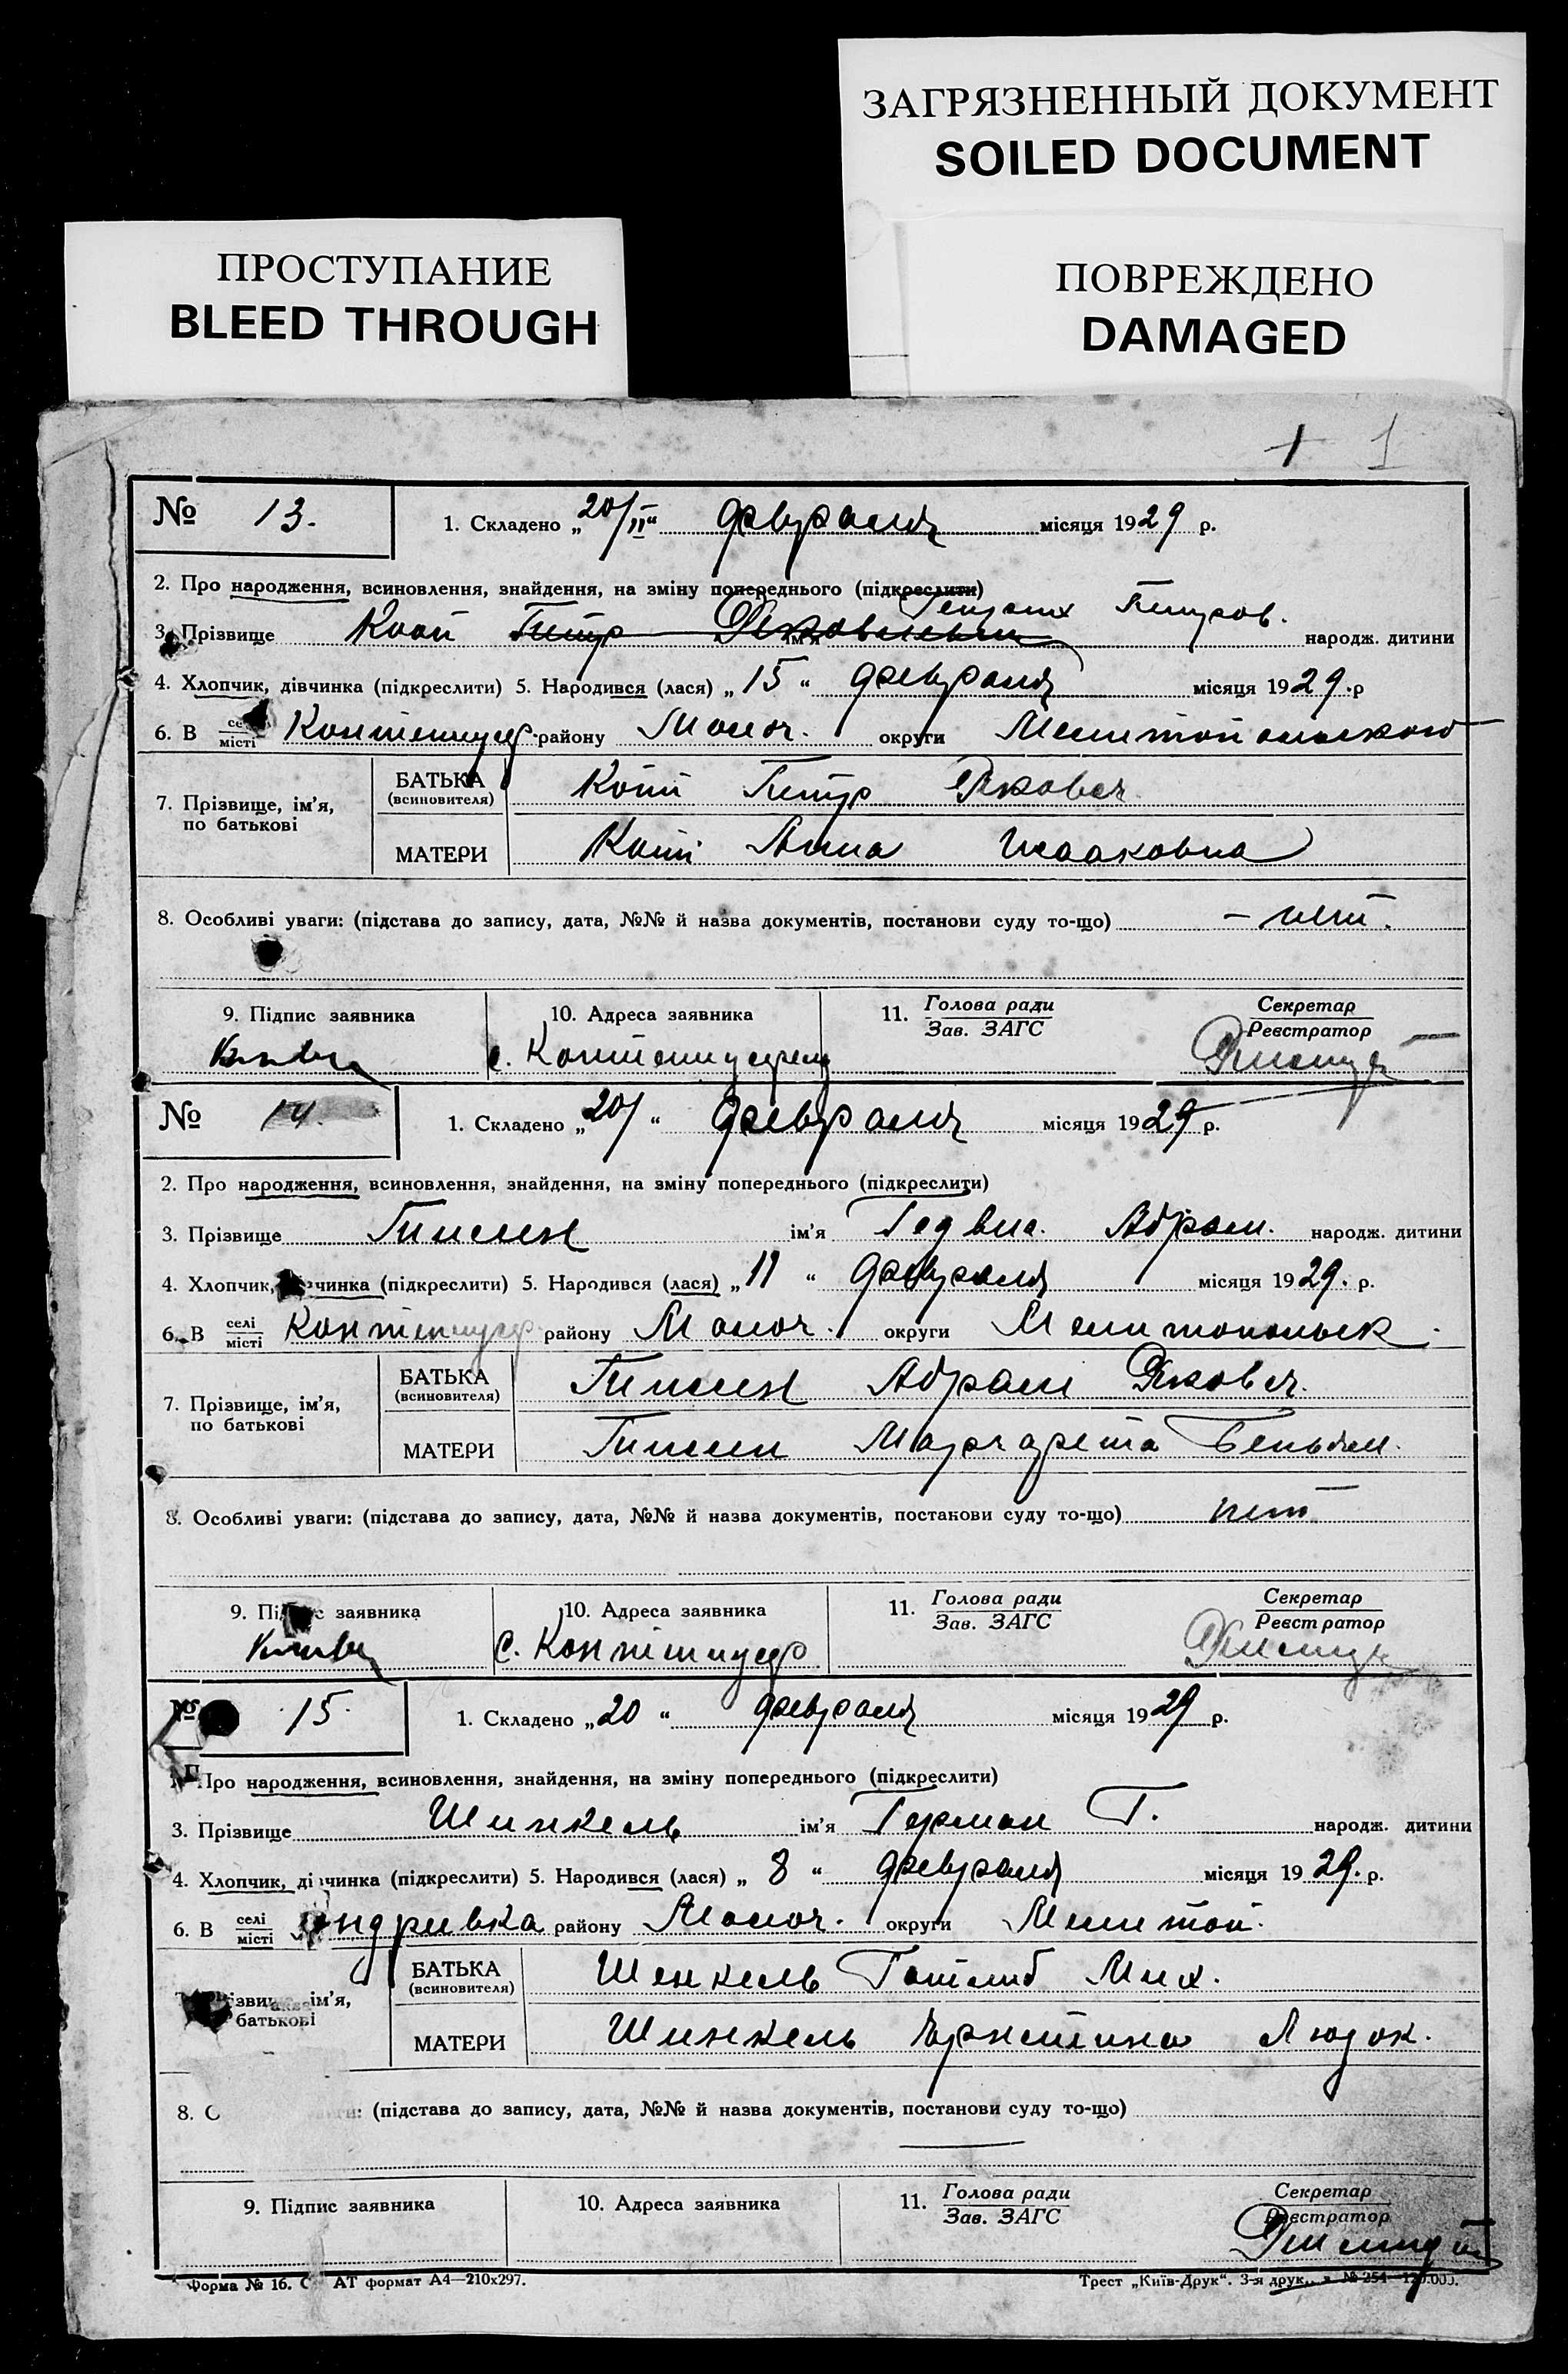 ЗАГРЯЗНЕННЫЙ ДОКУМЕНТ
SOILED DOCUMENT
ПРОСТУПАНИЕ
BLEED THROUGH
ПОВРЕЖДЕНО
DAMAGED
+ 1
№ 13. 1. Складено „20/II“ февраля місяця 1929 р.
2. Про народження, всиновлення, знайдення, на зміну попереднього (підкреслити)
Генрих Петров.
3. Прізвище Кооп Петр ім'я народж. дитини
4. Хлопчик, дівчинка (підкреслити) 5. Народився (лася) „15“ февраля місяця 1929.р
6. В селі місті району Молоч. округи Мелитопольского
7. Прізвище, ім'я, по батькові БАТЬКА (всиновителя) Кооп Петр Яковл.
МАТЕРИ Кооп Анна Исааковна
8. Особливі уваги: (підстава до запису, дата, №№ й назва документів, постанови суду то-що) – нет.
9. Підпис заявника 10. Адреса заявника 11. Голова ради Зав. ЗАГС Секретар Реєстратор
№ 14. 1. Складено „20/“ февраля місяця 1929 р.
2. Про народження, всиновлення, знайдення, на зміну попереднього (підкреслити)
3. Прізвище ім'я Гедвиг. Абрам. народж. дитини
4. Хлопчик, чинка (підкреслити) 5. Народився (лася) „11“ февраля місяця 1929. р.
6. В селі місті району Молоч. округи Мелитопольск.
7. Прізвище, ім'я, по батькові БАТЬКА (всиновителя) Абрам Яковл.
МАТЕРИ Маргарета Беньям.
8. Особливі уваги: (підстава до запису, дата, №№ й назва документів, постанови суду то-що) нет
9. заявника 10. Адреса заявника 11. Голова ради Зав. ЗАГС Секретар Реєстратор
№ 15. 1. Складено „20“ февраля місяця 1929 р.
Про народження, всиновлення, знайдення, на зміну попереднього (підкреслити)
3. Прізвище Шинкель ім'я Герман Г. народж. дитини
4. Хлопчик, дівчинка (підкреслити) 5. Народився (лася) „8“ февраля місяця 1929. р.
6. В селі місті району Молоч. округи Мелитоп.
ім'я, батькові БАТЬКА (всиновителя) Шенкель Готлиб Мих.
МАТЕРИ Шинкель Эрнстина Людок.
8. (підстава до запису, дата, №№ й назва документів, постанови суду то-що)
9. Підпис заявника 10. Адреса заявника 11. Голова ради Зав. ЗАГС Секретар Реєстратор
Форма № 16. АТ формат А4—210х297. Трест „Київ-Друк“. 3-я друк.